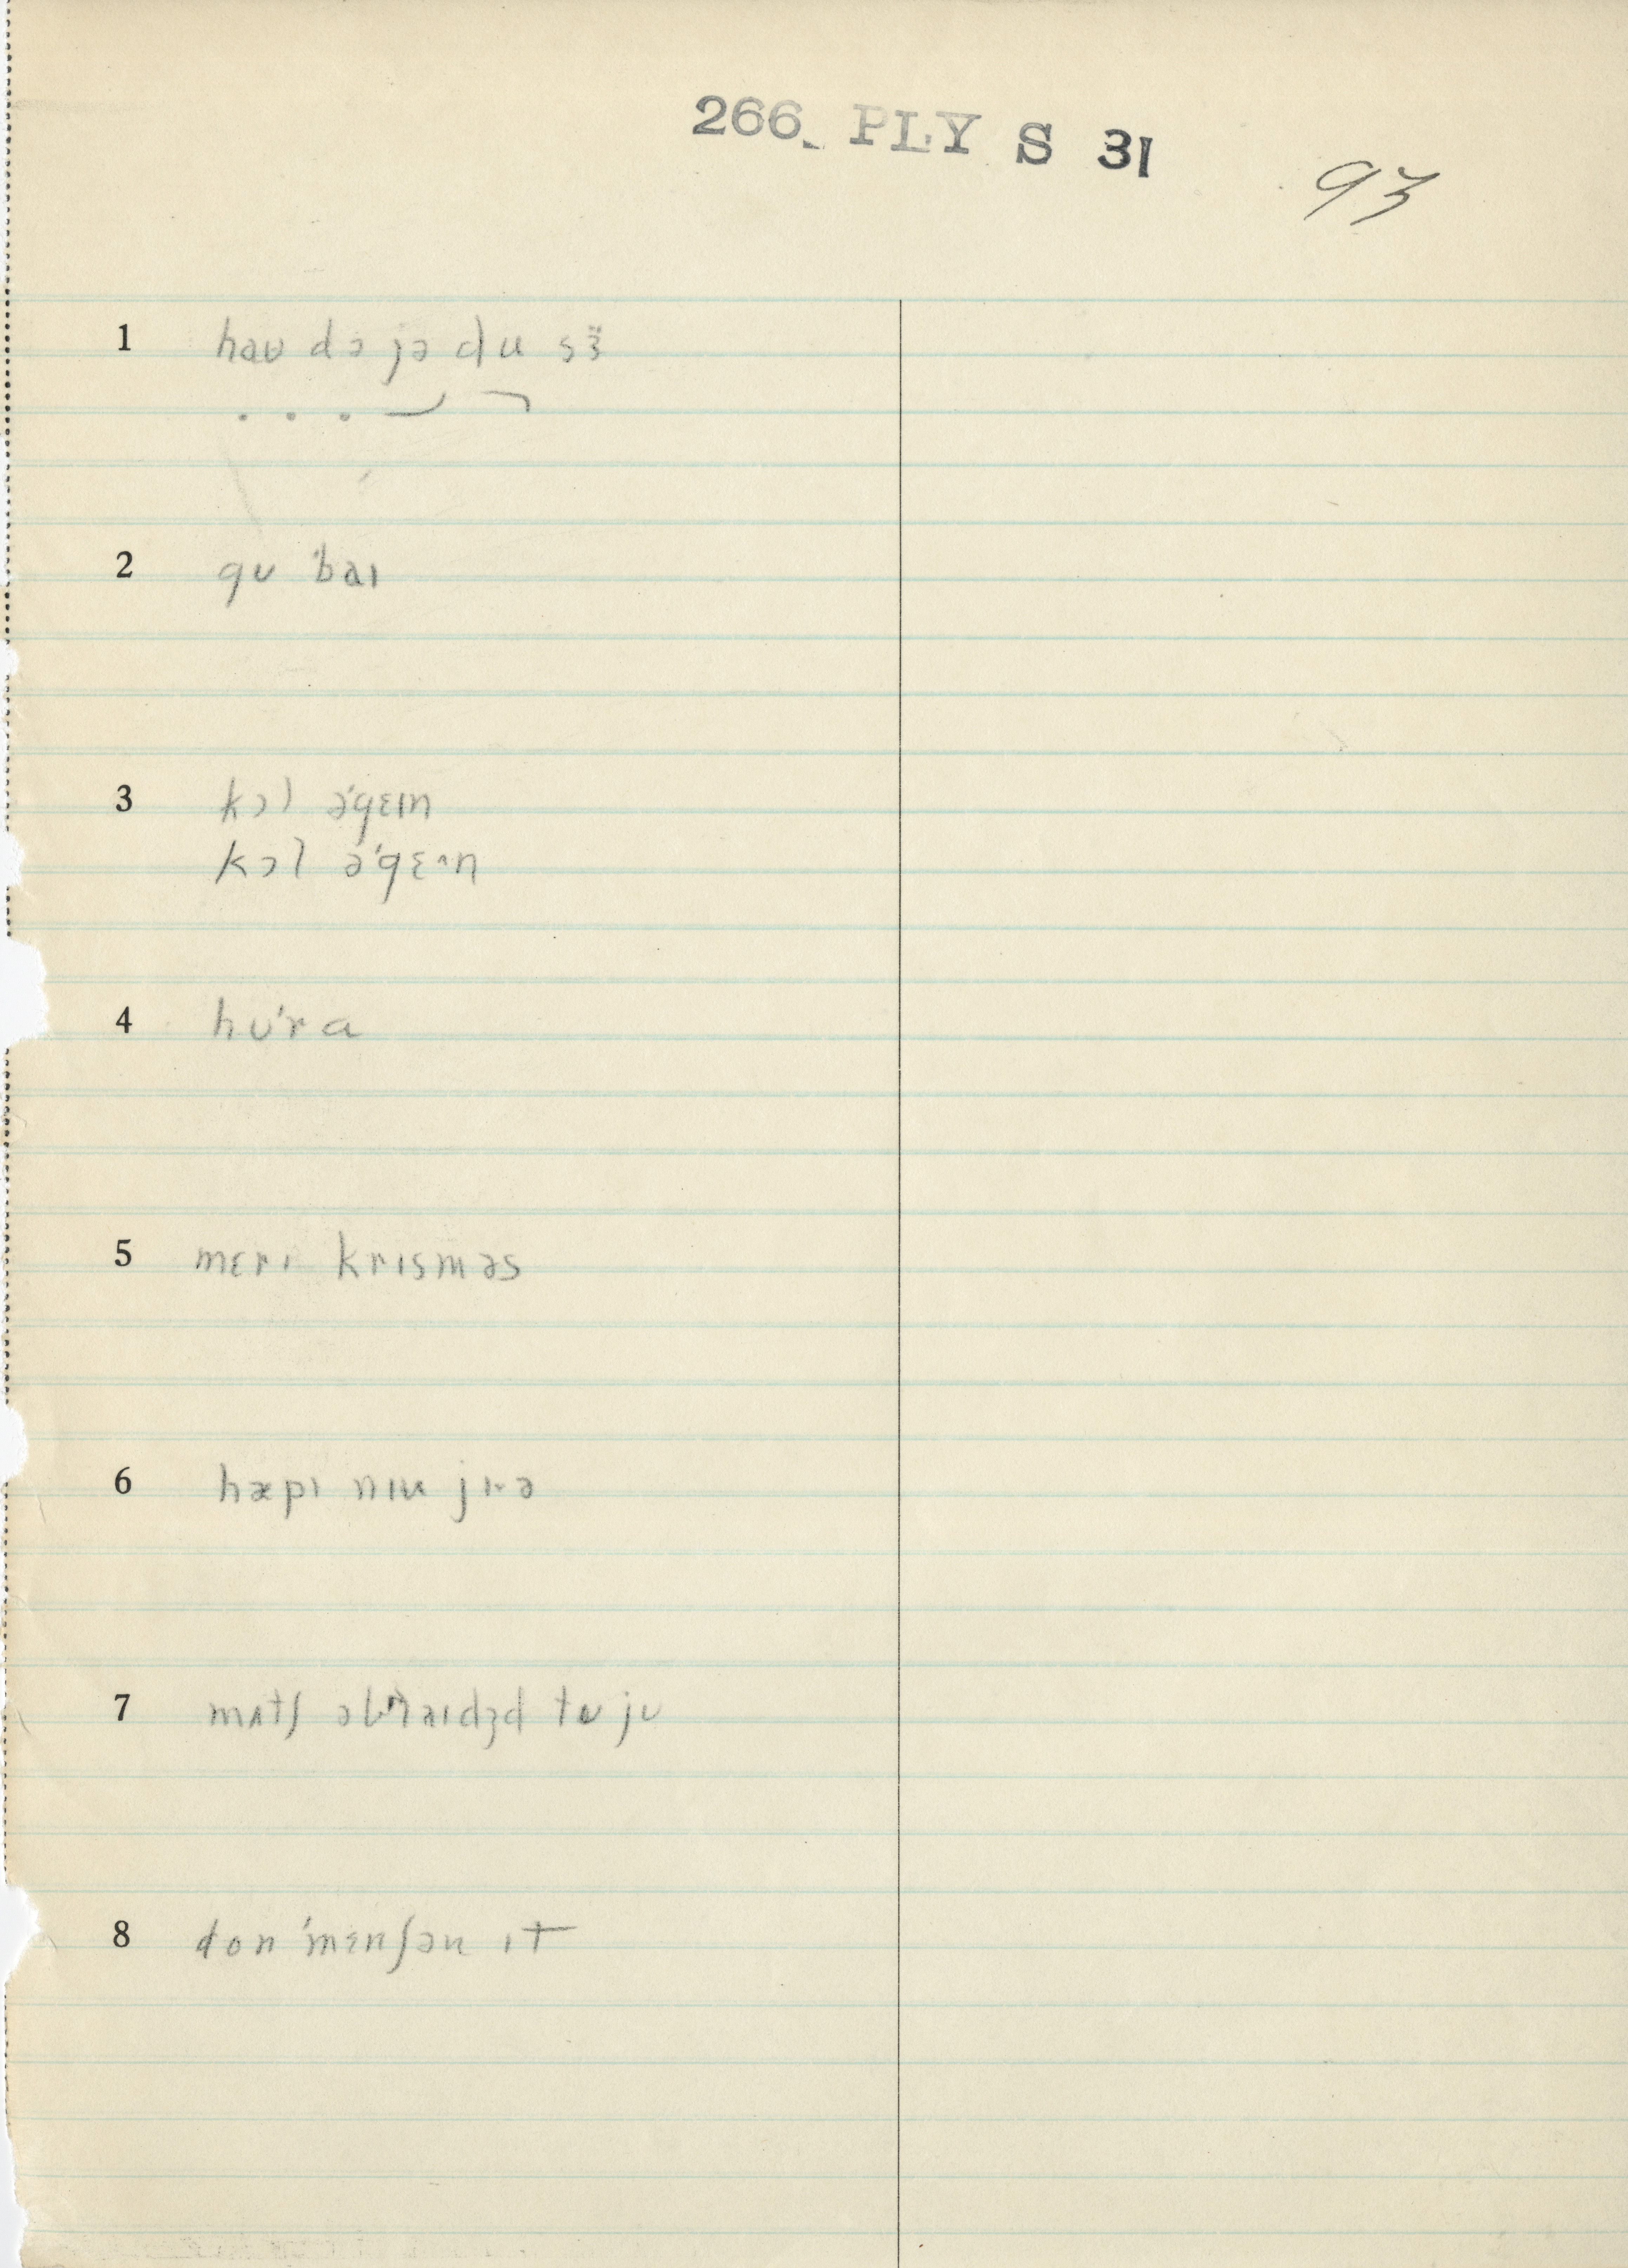 266 PLY S 31
93
1 haʊ də jə du sɜ̈
2 gʊ ˈbaɪ
3 kɔl əˈgɛɪn
kɔl əˈgɛ·n
4 hʊˈrɑ
5 mɛrɪ krɪsməs
6 hæpɪ nɪu jɪ·ə
7 mʌtʃ əˈblaɪdʒd tʊ jʊ
8 don ˈmɛnʃən ɪt